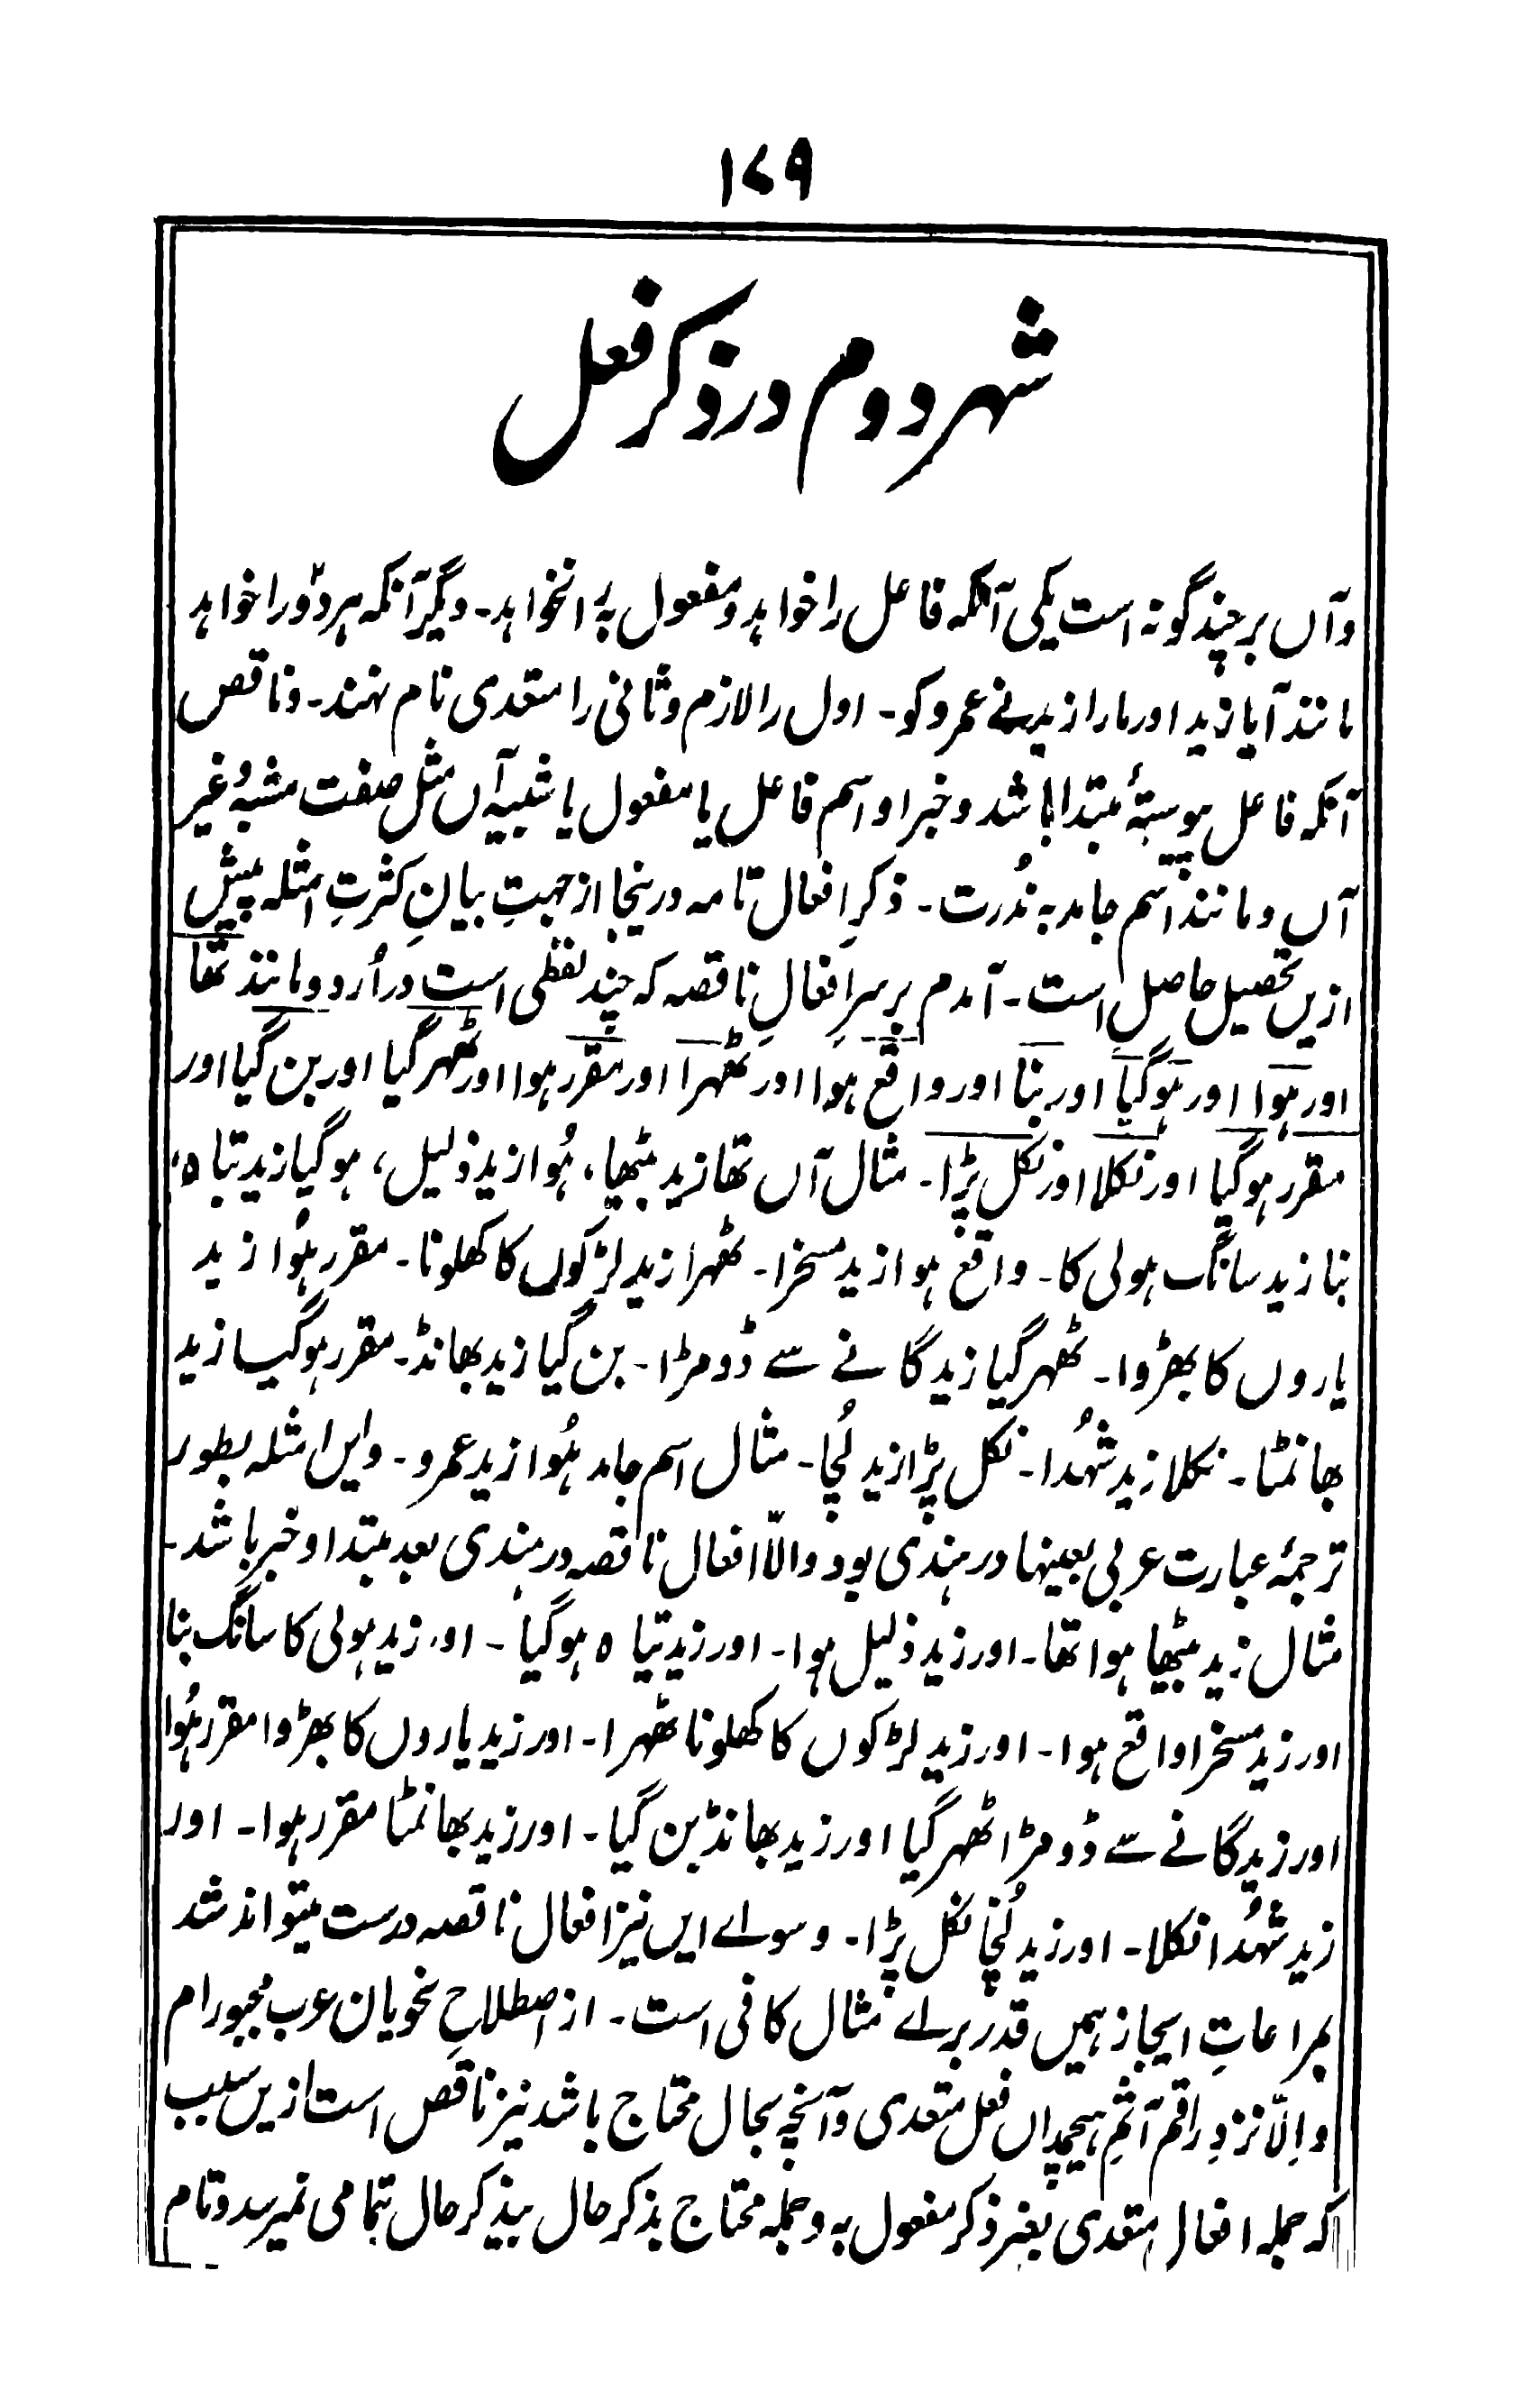 ۱۷۹
شهر دوم در ذکر فعل
وآں بر چند گونہ است یکی آنکہ فاعل را خواہد و مفعول بہٖ را نخواہد۔ دیگر آنکہ ہر دو را خواہد
مانند آیا زید اور مارا زید نے عمرو کو۔ اول را لازم و ثانی را متعدی نام نہند۔ و ناقص
آنکہ فاعل پیوستۂ مبتدا باشد و خبر او اسم فاعل یا مفعول یا شبیہ آں مثل صفت مشبہ و غیر
آں و مانند اسم جامد بہ نُدرت۔ ذکرِ افعال تامہ درینجا از جہتِ بیانِ کثرتِ امثلہ پیش
ازیں تحصیل حاصل است۔ آمدم بر سرِ افعالِ ناقصہ کہ چند لفظی است در اُردو مانند تھا
اور ہوا اور ہوگیا اور بنا اور واقع ہوا اور ٹھہرا اور مقرر ہوا اور ٹھہر گیا اور بن گیا اور
مقرر ہوگیا اور نکلا اور نکل پڑا۔ مثال آں تھا زید بیٹھا، ہُوا زید ذلیل، ہوگیا زید تباہ،
بنا زید سانگ ہولی کا۔ واقع ہوا زید مسخرا۔ ٹھہرا زید لڑکوں کا کھلونا۔ مقرر ہُوا زید
یاروں کا بھڑوا۔ ٹھہر گیا زید گانے سے ڈومڑا۔ بن گیا زید بھانڈ۔ مقرر ہوگیا زید
بھانمتا۔ نکلا زید شُہدا۔ نکل پڑا زید لُچا۔ مثال اسم جامد ہُوا زید عمرو۔ وایں امثلہ بطور
ترجمۂ عبارت عربی بعینہا در ہندی بود والّا افعال ناقصہ در ہندی بعد مبتدا و خبر باشد۔
مثال زید بیٹھا ہوا تھا۔ اور زید ذلیل ہوا۔ اور زید تباہ ہوگیا۔ اور زید ہولی کا سانگ بنا
اور زید مسخرا واقع ہوا۔ اور زید لڑکوں کا کھلونا ٹھہرا۔ اور زید یاروں کا بھڑوا مقرر ہُوا
اور زید گانے سے ڈومڑا ٹھہر گیا اور زید بھانڈ بن گیا۔ اور زید بھانمتا مقرر ہوا۔ اور
زید شُہدا نکلا۔ اور زید لُچا نکل پڑا۔ و سواے ایں نیز افعال ناقصہ درست میتواند شد
بمراعاتِ ایجاز ہمیں قدر براے مثال کافی است۔ از اصطلاحِ نحویان عرب مجبورام
و اِلّا نزدِ راقم آثمِ ہیچمداں فعل متعدی و آنچہ بحال محتاج باشد نیز ناقص است ازیں سبب
کہ جملہ افعال متعدی بغیر ذکر مفعول بہ و جملہ محتاج بذکر حال بیذکر حال بتمامی نمیرسد و تام